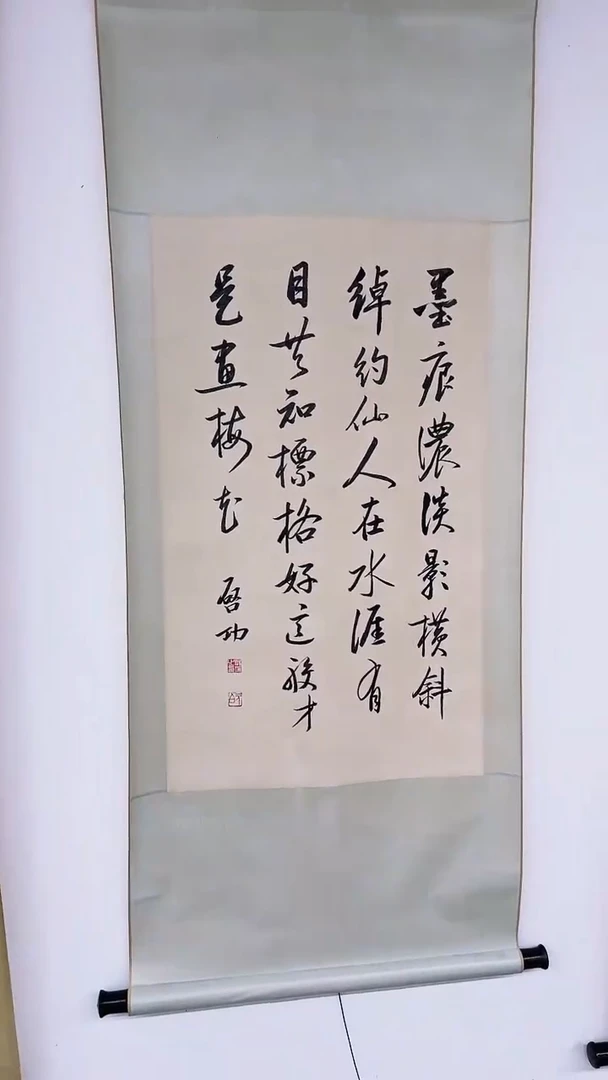 墨痕濃淡影橫斜
綽約仙人在水涯有
目共知標格好這般才
是畫梅花
啓功